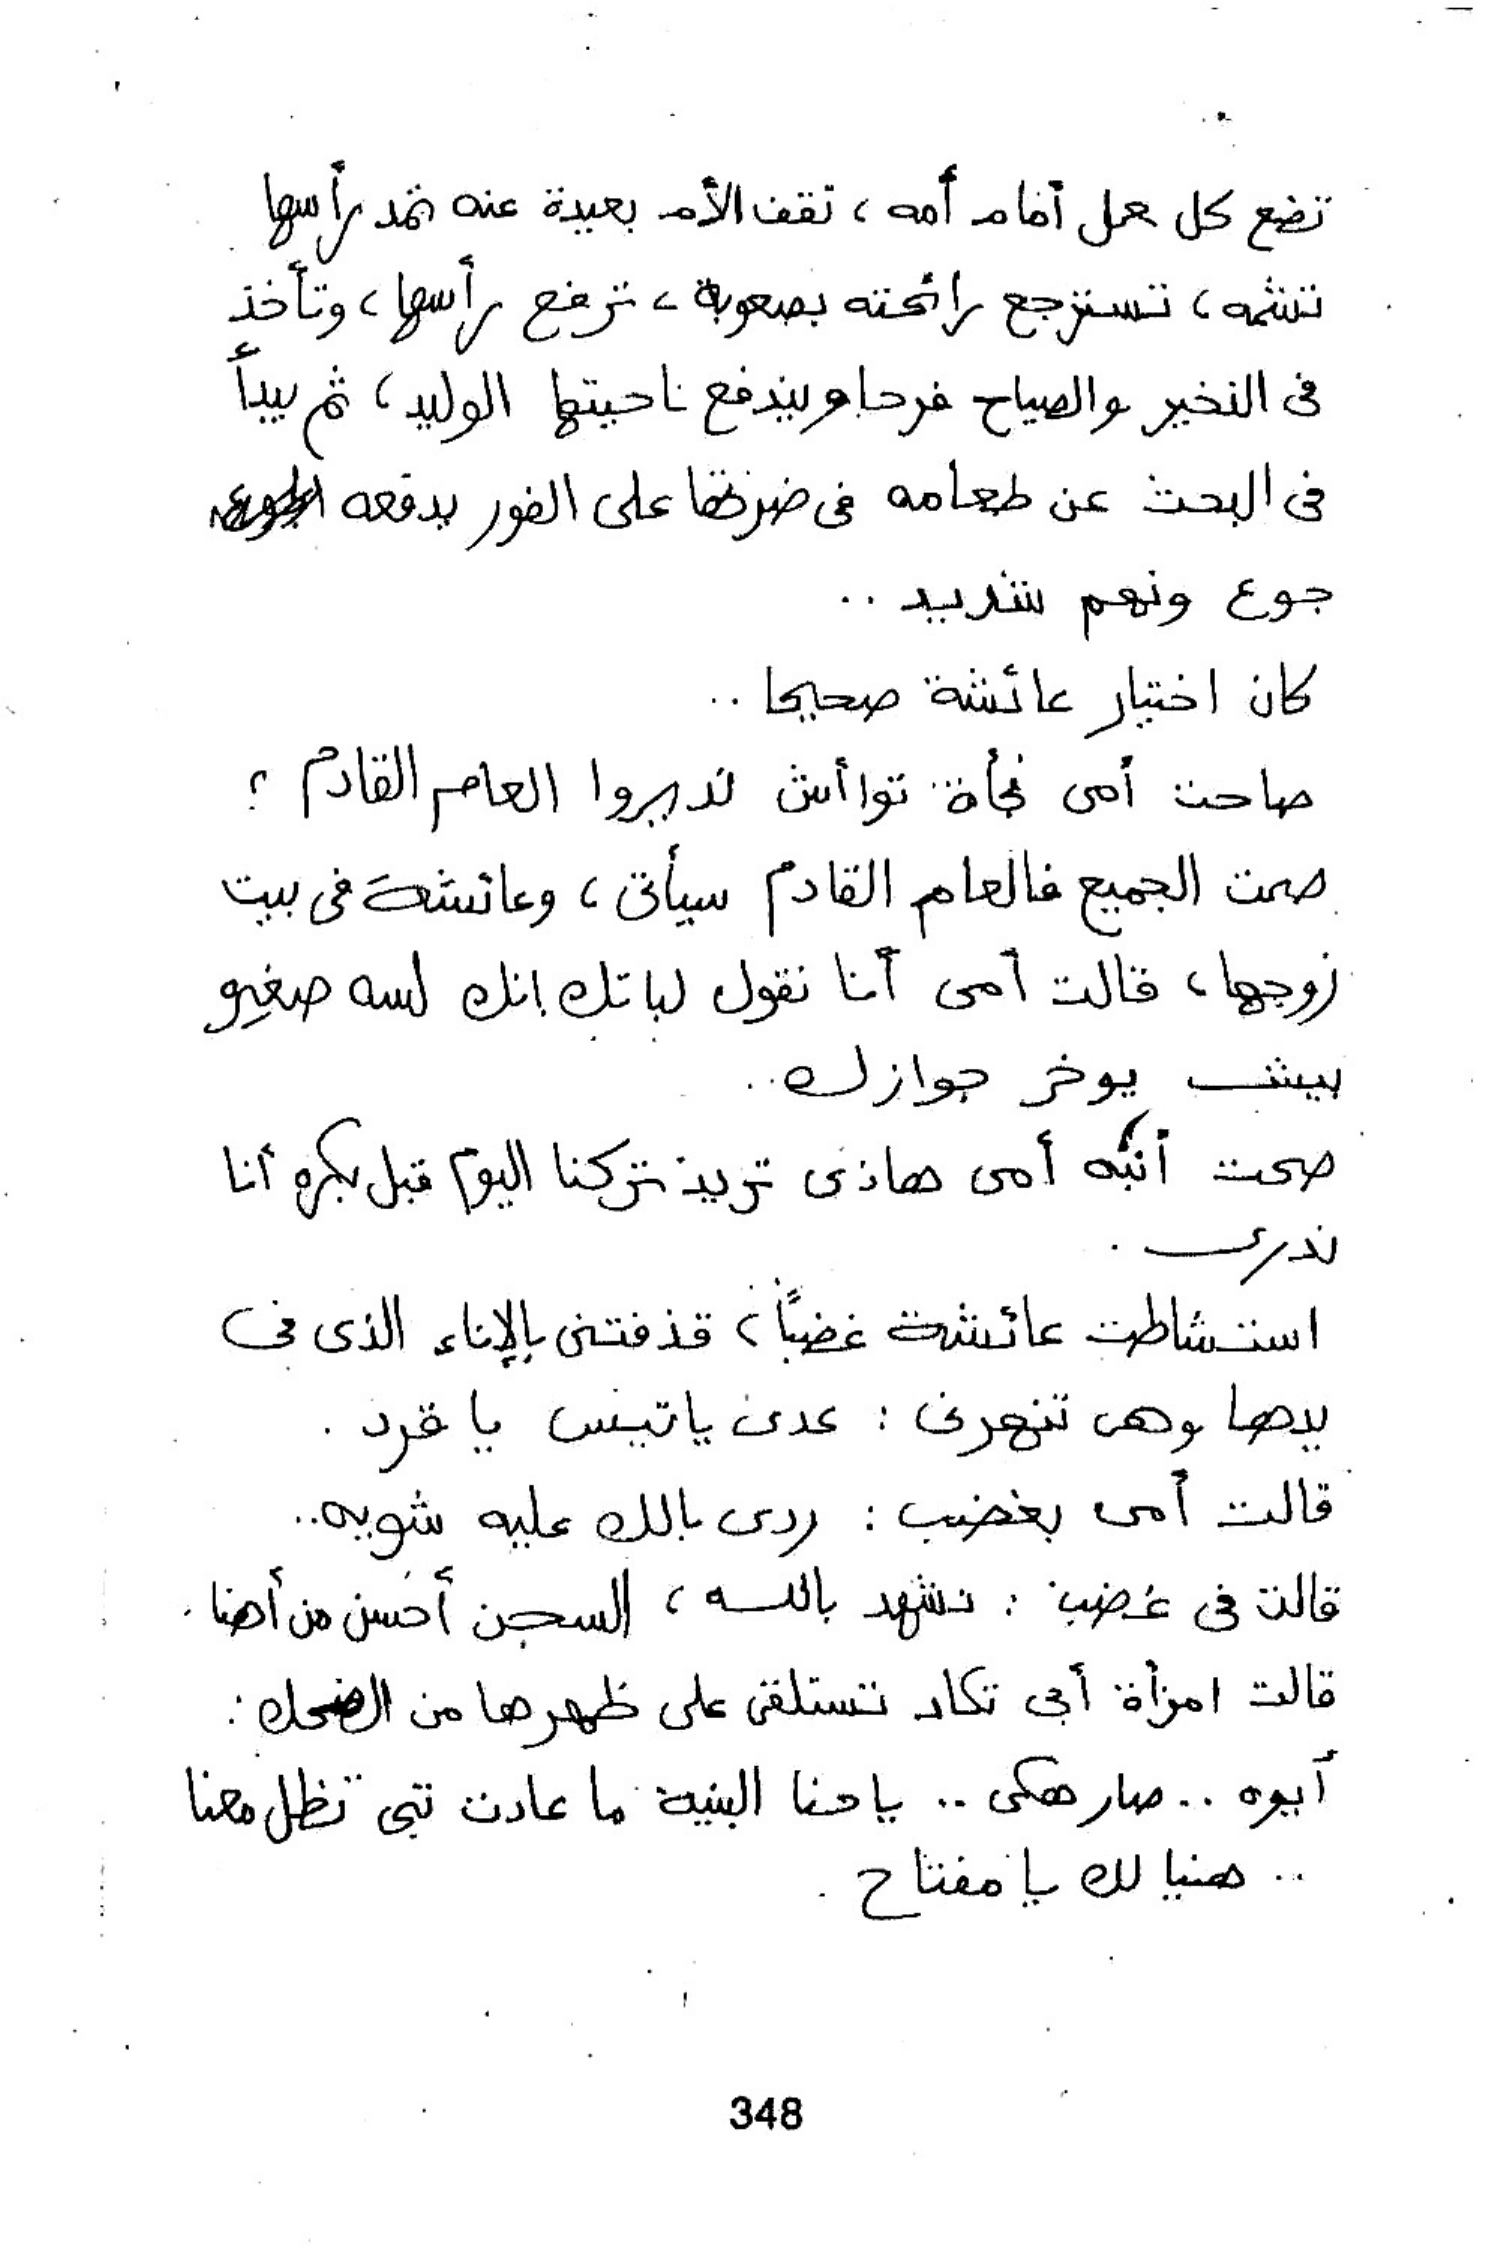 تضع كل حمل أمام أمه ، تقف الأم بعيدة عنه تمد رأسها
تشمه ، تسترجع رائحته بصعوبة ، ترفع رأسها ، وتأخذ
فى النخير والصياح فرحا ويندفع ناحيتها الوليد ، ثم يبدأ
فى البحث عن طعامه فى ضرعها على الفور يدفعه
جوع ونهم شديد ..
كان اختيار عائشة صحيحا ..
صاحت أمى فجأة توا أش نديروا العام القادم ؟
صمت الجميع فالعام القادم سيأتى ، وعائشة فى بيت
زوجها ، قالت أمى أنا نقول لباتك إنك لسه صغيره
بيش يوخر جوازك ..
صحت أنبه أمى هاذى تريد تتركنا اليوم قبل بكره أنا
ندرى .
استشاطت عائشة غضبًا ، قذفتنى بالإناء الذى فى
يدها وهى تنهرنى : عدى يا تيس يا قرد .
قالت أمى بغضب : ردى بالك عليه شويه ..
قالت فى غضب : نشهد بالله ، السجن أحسن من أهنا .
قالت امرأة أبى تكاد تستلقى على ظهرها من الضحك :
أيوه .. صار هكى .. ياحنا البنية ما عادت تبى تظل معنا
.. هنيا لك يا مفتاح .
348